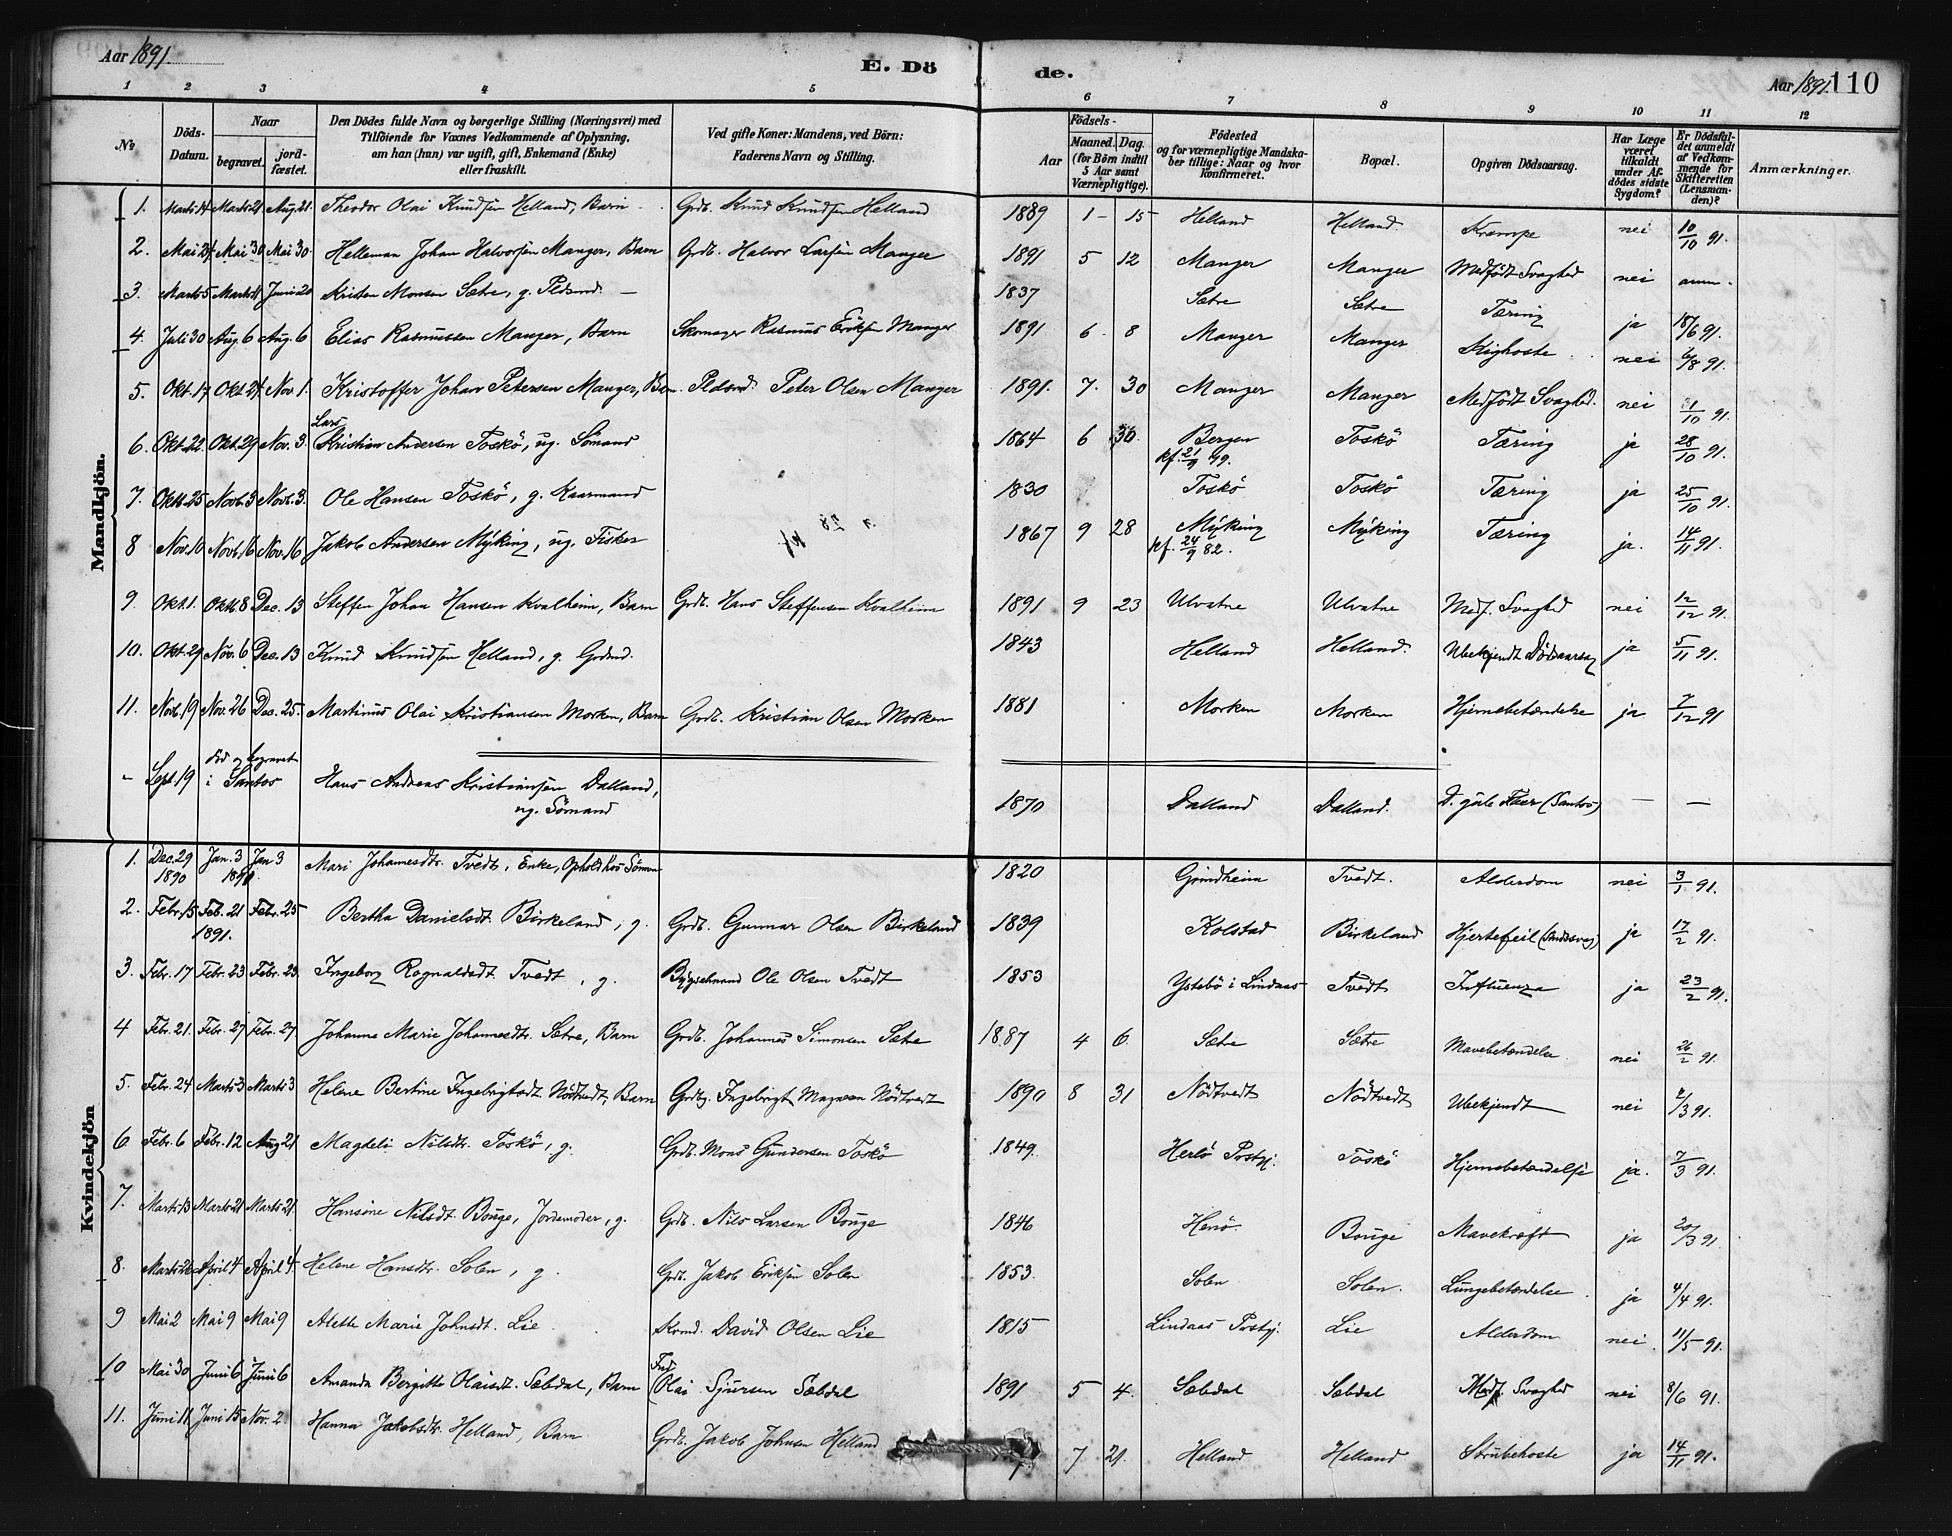 Aar 1891.
E. Dö
de.
Aar 1891.
110
1 2 3 4 5 6 7 8 9 10 11 12
No
Döds-Datum.
Naar
begravet.
jord-fæstet.
Den Dödes fulde Navn og borgerlige Stilling (Næringsvei) med
Tilföiende for Voxnes Vedkommende af Oplysning,
om han (hun) var ugift, gift, Enkemand (Enke)
eller fraskilt.
Ved gifte Koner: Mandens, ved Börn:
Faderens Navn og Stilling.
Födsels-
Aar
Maaned. Dag.
(for Börn indtil 5 Aar samt Værnepligtige).
Födested
og for værnepligtige Mandska-
ber tillige: Naar og hvor
konfirmeret.
Bopæl.
Opgiven Dödsaarsag.
Har Læge været tilkaldt under Af-dödes sidste Sygdom?
Er Dödsfal-det anmeldt af Vedkom-mende for Skifteretten (Lensman-den)?
Anmærkninger.
Mandkjön.
1. Marts 14 Marts 21 Aug. 21. Theodor Olai Knudsen Helland, Barn Grdb. Knud Knudsen Helland 1889 1 - 15 Helland Helland Krampe nei 10/10 91.
2. Mai 24 Mai 30 Mai 30. Helleman Johan Halvorsen Manger, Barn Grdb. Halvor Larsen Manger 1891 5 12 Manger Manger Medfödt Svaghed nei anm.
3. Marts 5 Marts 11 Juni 20 Kristen Monsen Sætre, g. Pldsmd. 1837 Sætre Sætre Tæring ja 18/6 91.
4. Juli 30 Aug. 6 Aug. 6 Elias Rasmussen Manger, Barn Skomager Rasmus Eriksen Manger 1891 6 - 8 Manger Manger Kighoste nei 6/8 91.
5. Okt. 17 Okt 24 Nov. 1. Kristoffer Johan Petersen Manger, Barn. Pldsmd. Peter Olsen Manger 1891. 7. 30 Manger Manger Medfödt Svaghed. nei 31/10 91.
Lars
6. Okt. 22 Okt. 29 Nov. 3. Kristian Andersen Toskö, ug. Sömand 1864 6 30. Bergen Toskö Tæring ja 28/10 91.
kf. 21/9 79.
7. Oktb. 25 Novb. 3 Novb. 3. Ole Hansen Toskö, g. Kaarmand 1830 Toskö Toskö Tæring ja 25/10 91.
8 Nov. 10 Novb. 16 Nov. 16 Jakob Andersen Myking, ug. Fisker 1867 9 28 Myking Myking Tæring ja. 14/11 91.
kf. 24/9 82.
9. Okt. 1. Oktb. 8 Dec. 13 Steffen Johan Hansen Kvalheim, Barn Grdb. Hans Steffensen Kvalheim 1891 9 23 Ulvatne Ulvatne Medf. Svaghed nei 12/12 91.
10. Okt. 29 Nov. 6 Dec. 13 Knud Knudsen Helland, g. Grdmd. 1843 Helland Helland. Ubekjendt Dödsaarsag ja 5/11 91.
11. Novb. 19 Nov. 26 Dec. 25. Martinus Olai Kristiansen Morken, Barn Grdb. Kristian Olsen Morken 1881 Morken Morken Hjernebetændelse ja 7/12 91
- Sept. 19 död og begravet
i Santos Hans Andreas Kristiansen Dalland,
ug. Sömand 1870 Dalland Dalland. D. gule Feber (Santos) — —
Kvindekjön
1. Dec. 29 1890 Jan. 3 1891. Jan 3 Mari Johannesdtr. Tvedt, Enke, Ophold hos Sönnen 1820 Grindheim Tvedt. Alderdom nei 3/1 91.
2. Febr. 15 Feb. 21 1891. Febr. 25 Bertha Danielsdt. Birkeland, g. Grdb. Gunnar Olsen Birkeland 1839 Kolstad Birkeland Hjertefeil ja 17/2 91.
3. Febr. 17 Febr. 23 Febr. 23. Ingeborg Rognaldsdt. Tvedt, g. Bygselmand Ole Olsen Tvedt 1853 Ystebö i Lindaas Tvedt Influenza ja 23/2 91.
4 Febr. 21. Febr. 27 Febr. 27 Johanna Marie Johannesdtr. Sætre, Barn Grdb. Johannes Simonsen Sætre 1887 4 6 Sætre Sætre Mavebetændelse nei 26/2 91.
5. Febr. 24 Marts 3 Marts 3 Helene Bertine Ingebrigtsdt. Nödtvedt, Barn Grdbg. Ingebrigt Magnesen Nödtvedt 1890 8 31 Nödtvedt Nödtvedt Ubekjendt nei 2/3 91.
6 Febr. 6 Febr. 12 Aug 21 Magdeli Nilsdtr. Toskö, g. Grdb. Mons Gundersen Toskö 1849. Herlö Prstgj. Toskö Hjernebetændelse ja. 7/3 91.
7. Marts 13 Marts 21 Marts 21. Hansine Nilsdt. Bouge, Jordemoder, g. Grdb. Nils Larsen Bouge 1846 Herö. Bouge Mavekræft ja 20/3 91
8. Marts 26 April 4 April 4 Helene Hansdtr. Solen, g. Grdb. Jakob Eriksen Solen 1853. Solen Solen. Lungebetændelse ja 4/4 91.
9 Mai 2 Mai 9 Mai 9 Alette Marie Johnsdt. Lie Krmd. David Olsen Lie 1815 Lindaas Prstgj. Lie Alderdom nei. 11/5 91.
10 Mai 30 Juni 6 Juni 6 Amanda Bergitte Olaisdt. Sæbdal, Barn Olai Sjursen Sæbdal 1891 5 4. Sæbdal Sæbdal Medf. Svaghed nei 8/6 91.
11. Juni 11 Juni 15 Nov. 2. Hanna Jakobsdtr. Helland, Barn Grdb. Jakob Johnsen Helland 7 21. Helland Helland Strubehoste ja 14/11 91.